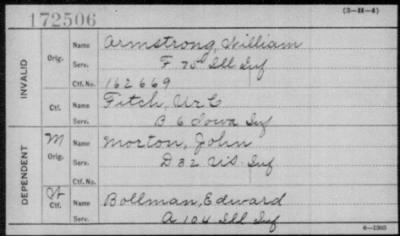 172506
(3—H—4)
INVALID
Orig.
Name Armstrong, William
Serv. F 70" Ill Inf
Ctf. No. 162669
Ctf.
Name Fitch, Ur C
Serv. B 6 Iowa Inf
DEPENDENT
M
Orig.
Name Morton, John
Serv. D 32 Ills Inf
Ctf. No.
W
Ctf.
Name Bollman, Edward
Serv. A 104 Ill Inf
6—1303